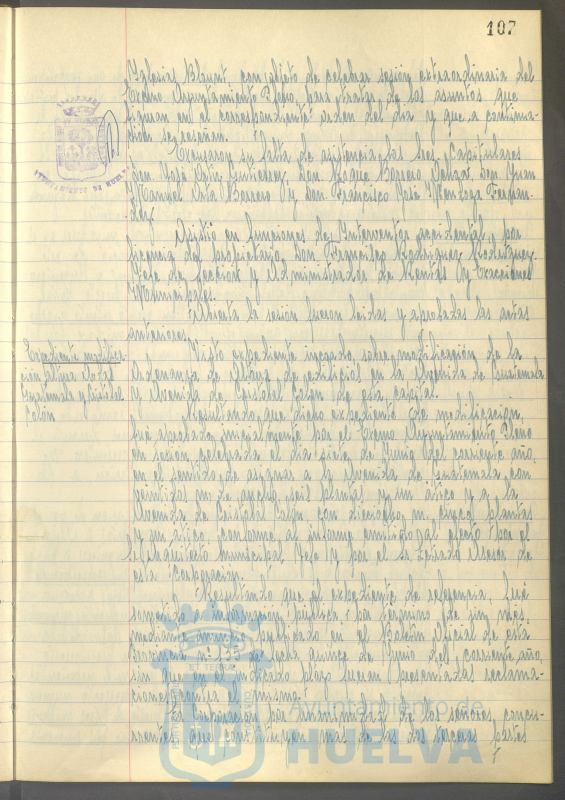 107
Iglesias Blount, con objeto de celebrar sesión extraordinaria del
Excmo Ayuntamiento Pleno, para tratar de los asuntos que
figuran en el correspondiente orden del día y que a continua-
ción se reseñan.
Excusaron su falta de asistencia los Sres. Capitulares
Don José Gutiérrez, Don Roque Barrero, Don Juan
Manuel Orta Barrero y Don Francisco José Mendoza Fernán-
dez
Asistió en funciones de Interventor accidental, por
licencia del propietario, Don Francisco Rodríguez Rodríguez,
Jefe de Sección y Administrador de Rentas y Exacciones
Municipales.
Abierta la sesión fueron leídas y aprobadas las actas
anteriores.
AYUNTAMIENTO DE HUELVA
Expediente modifica-
ción altura Avdas
Guatemala y Cristóbal
Colón
Visto expediente incoado sobre modificación de la
Ordenanza de altura de edificios en la Avenida de Guatemala
y Avenida de Cristóbal Colón de esta capital.
Resultando que dicho expediente de modificación,
fué aprobado inicialmente por el Excmo Ayuntamiento Pleno
en sesión celebrada el día siete de Junio del corriente año,
en el sentido de asignar a la Avenida de Guatemala con
veintidós m. de ancho, seis plantas y un ático y a la
Avenida de Cristóbal Colón, con dieciocho m. cinco plantas
y un ático, conforme al informe emitido al efecto por el
Sr. Arquitecto Municipal Jefe y por el Sr. Letrado Asesor de
esta Corporación.
Resultando que el expediente de referencia, fué
sometido a información pública, por término de un mes,
mediante anuncio publicado en el Boletín Oficial de esta
provincia nº 135 de fecha quince de Junio del corriente año,
sin que en el indicado plazo fueran presentadas reclama-
ciones contra el mismo.
La Corporación por unanimidad de los señores concu-
rrentes, que constituyen más de las dos terceras partes
Ayuntamiento de
HUELVA